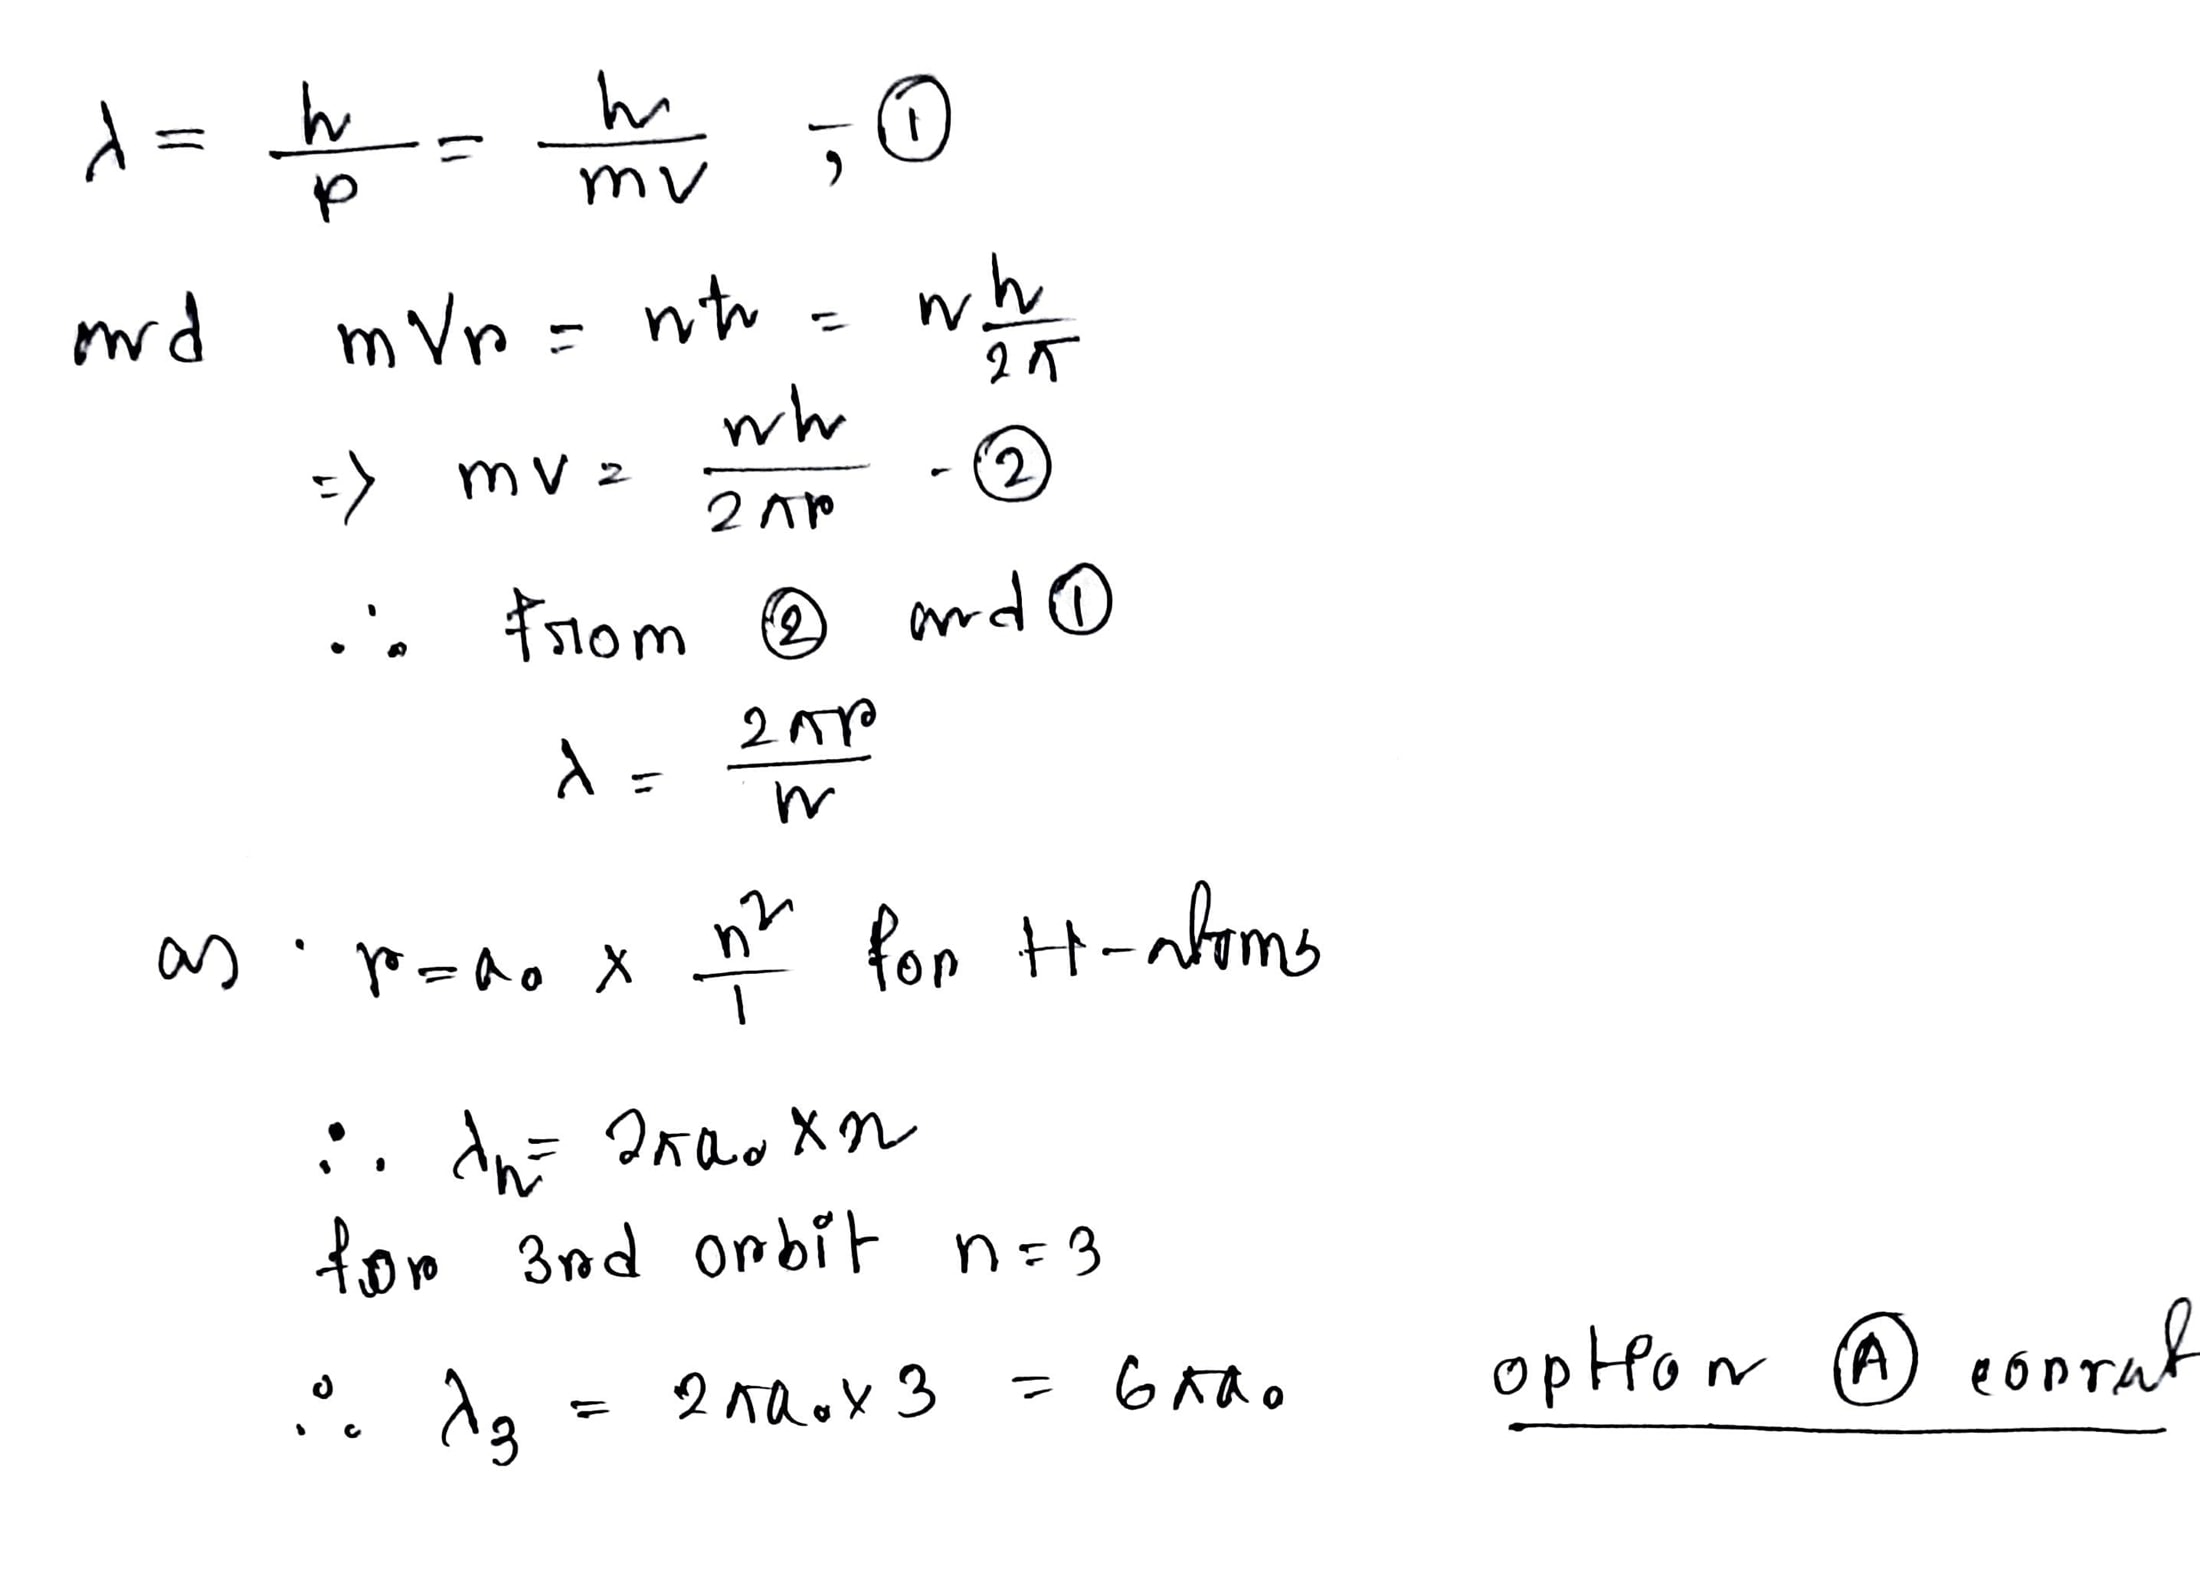 λ = h/p = h/mv , - ①
and mvr = nħ = n h/2π
=> mv = nh/2πr - ②
∴ from ② and ①
λ = 2πr/n
as r = a₀ × n²/1 for H-atoms
∴ λₙ = 2πa₀ × n
for 3rd orbit n = 3
∴ λ₃ = 2πa₀ × 3 = 6πa₀
option Ⓐ correct